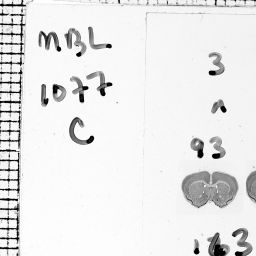 MBL
1077
C
3
n
93
163